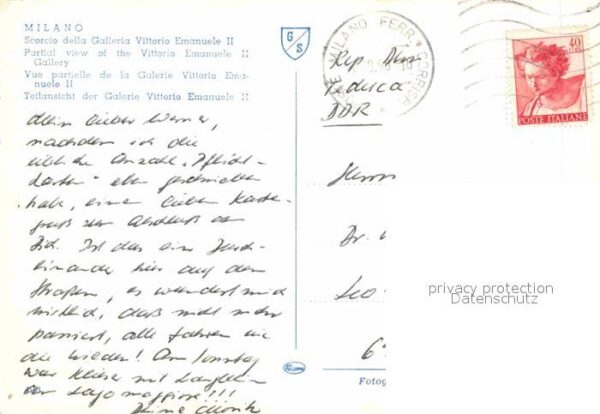 MILANO
Scorcio della Galleria Vittorio Emanuele II
Partial view of the Vittorio Emanuele II
Gallery
Vue partielle de la Galerie Vittorio Ema-
nuele II
Teilansicht der Galerie Vittorio Emanuele II
G S
MILANO FERR. CORRISP
40
POSTE ITALIANE
Mein lieber Werner,
nachdem ich die
übliche Anzahl „Pflicht-
karten" eben geschrieben
habe, einen lieben Karten-
gruß zum Abschluß an
Dich. Ist das ein Durch-
einander hier auf den
Straßen, es wundert mich
wirklich, daß nicht mehr
passiert, alle fahren wie
die wieder! Am Sonntag
war
mit
am Lago maggiore!!!
Deine
Rep. Dem.
Tedesca
DDR
Herrn
Dr.
Leo
6
privacy protection
Datenschutz
Fotog